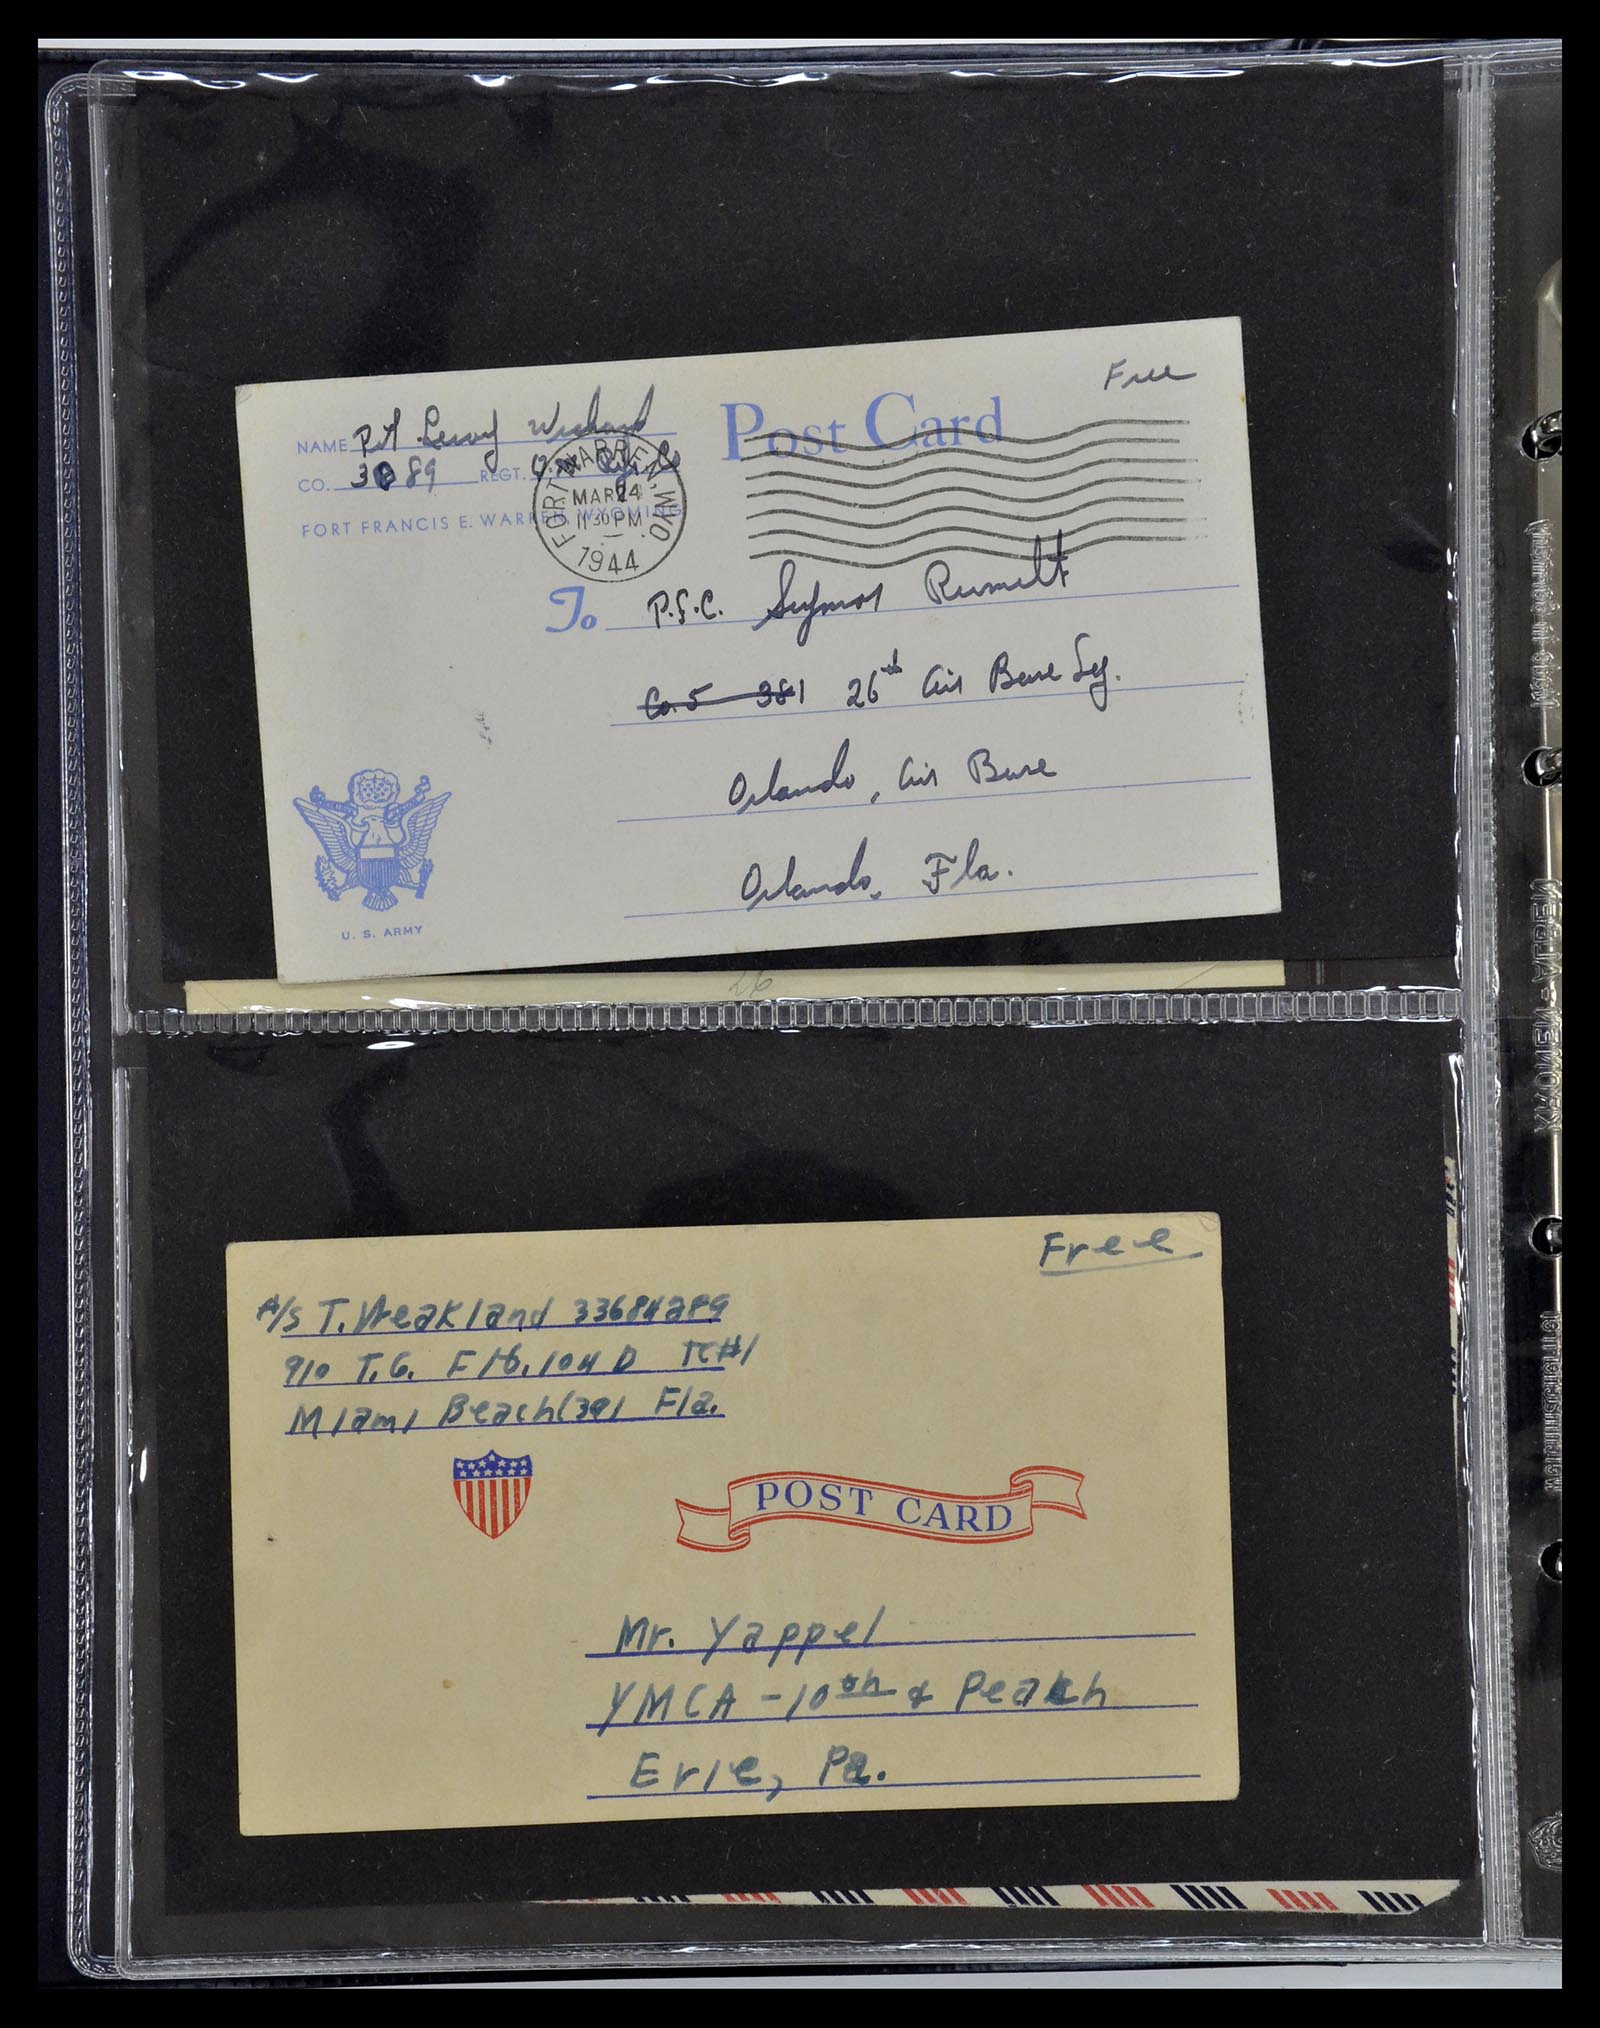 Free
NAME Pvt Leroy
Post Card
CO. 3089 REGT.
FORT FRANCIS E. WARREN, WYOMING
FORT WARREN, WYO.
MAR 24
11 30 PM
1944
To P.F.C. Seymor Rumelt
Co. 5 381 26th Air Base Sq.
Orlando, Air Base
Orlando, Fla.
U. S. ARMY
26
Free
A/S T. Weakland 33684289
910 T.G. Flt. 104 D TC#1
Miami Beach (39) Fla.
POST CARD
Mr. Yappel
YMCA - 10th & Peach
Erie, Pa.